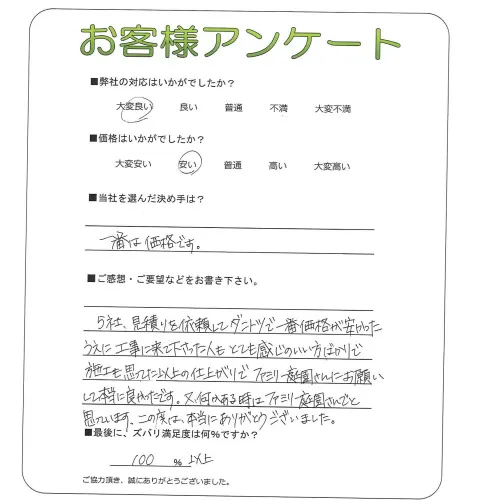 お客様アンケート
■弊社の対応はいかがでしたか？
大変良い 良い 普通 不満 大変不満
■価格はいかがでしたか？
大変安い 安い 普通 高い 大変高い
■当社を選んだ決め手は？
一番は価格です。
■ご感想・ご要望などをお書き下さい。
5社、見積りを依頼してダントツで一番価格が安かった
うえに工事に来て下さった人もとても感じのいい方ばかりで
施工も思ってた以上の仕上がりでファミリー庭園さんにお願い
して本当に良かったです。又何かある時はファミリー庭園さんでと
思っています。この度は、本当にありがとうございました。
■最後に、ズバリ満足度は何%ですか？
100 % 以上
ご協力頂き、誠にありがとうございました。